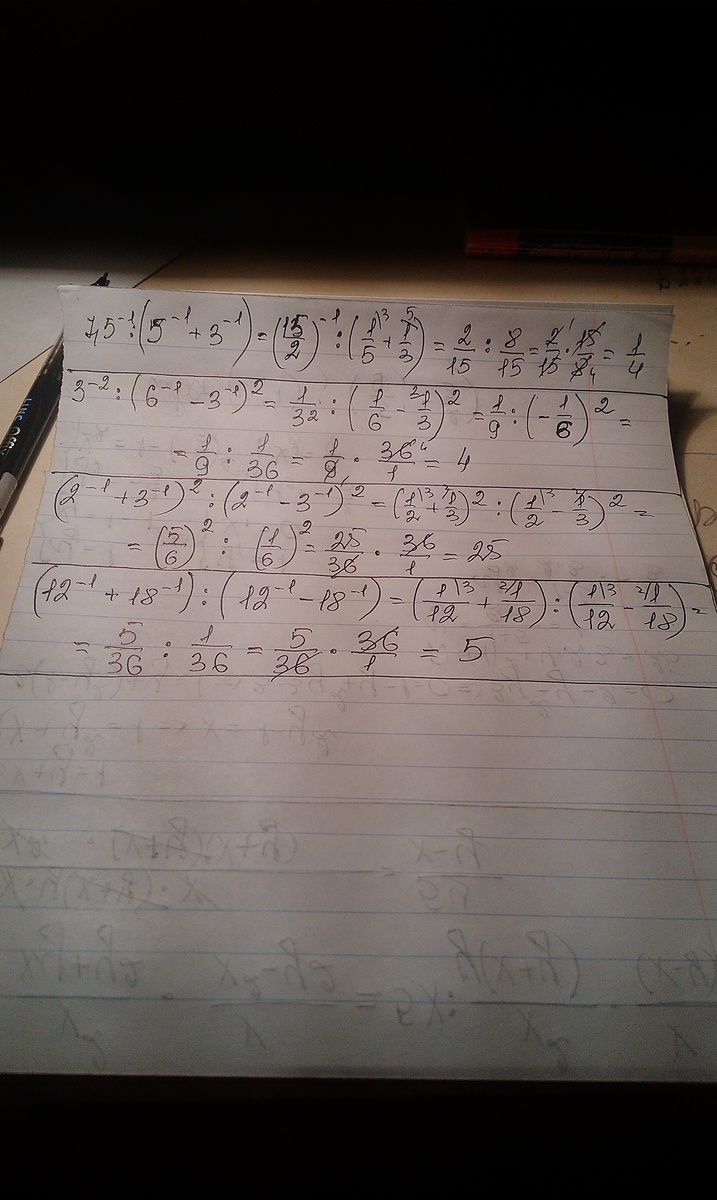 7,5⁻¹:(5⁻¹+3⁻¹)=(15/2)⁻¹:(1\3/5+5\1/3)=2/15:8/15=2/15·15/8=1/4
3⁻²:(6⁻¹-3⁻¹)²=1/3²:(1/6-2\1/3)²=1/9:(-1/6)²=
=1/9:1/36=1/9·36/1=4
(2⁻¹+3⁻¹)²:(2⁻¹-3⁻¹)²=(1\3/2+2\1/3)²:(1\3/2-2\1/3)²=
=(5/6)²:(1/6)²=25/36·36/1=25
(12⁻¹+18⁻¹):(12⁻¹-18⁻¹)=(1\3/12+2\1/18):(1\3/12-2\1/18)=
=5/36:1/36=5/36·36/1=5